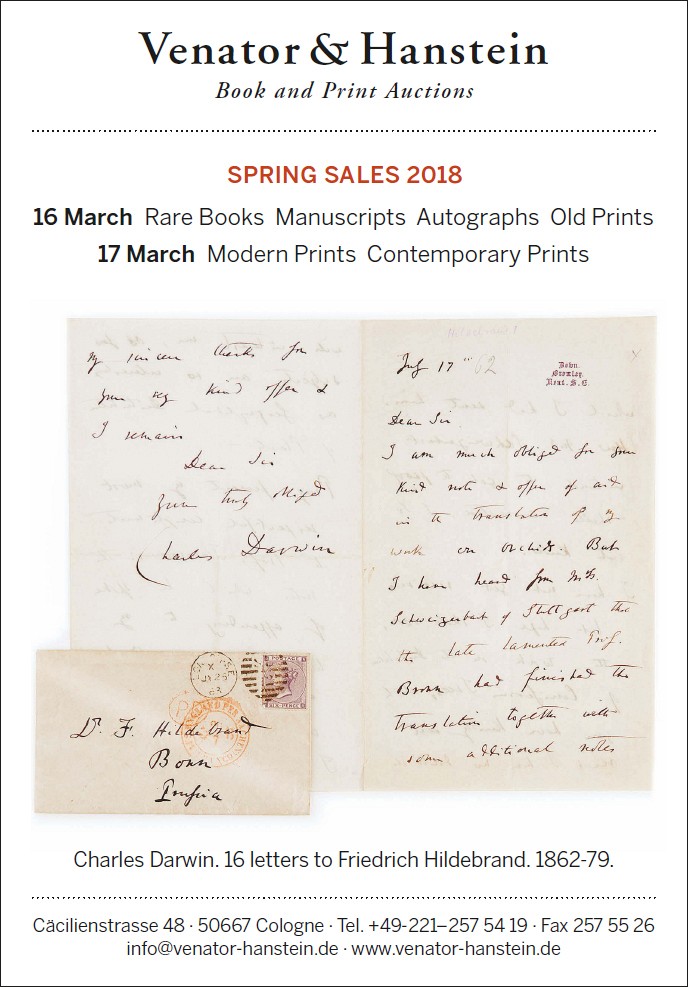 Venator & Hanstein
Book and Print Auctions
SPRING SALES 2018
16 March Rare Books Manuscripts Autographs Old Prints
17 March Modern Prints Contemporary Prints
my sincere thanks for
your very kind offer &
I remain
Dear Sir
your truly obliged
Charles Darwin
July 17th 62
Down.
Bromley.
Kent. S.E.
Dear Sir.
I am much obliged for your
kind note & offer of aid
in the translation of my
work on Orchids. But
I have heard from Mr.
Schweizerbart of Stuttgart that
the late lamented Prof.
Bronn had finished the
translation together with
some additional notes
POSTAGE
SIX PENCE
Dr. F. Hildebrand
Bonn
Prussia
Charles Darwin. 16 letters to Friedrich Hildebrand. 1862-79.
Cäcilienstrasse 48 · 50667 Cologne · Tel. +49-221–257 54 19 · Fax 257 55 26
info@venator-hanstein.de · www.venator-hanstein.de